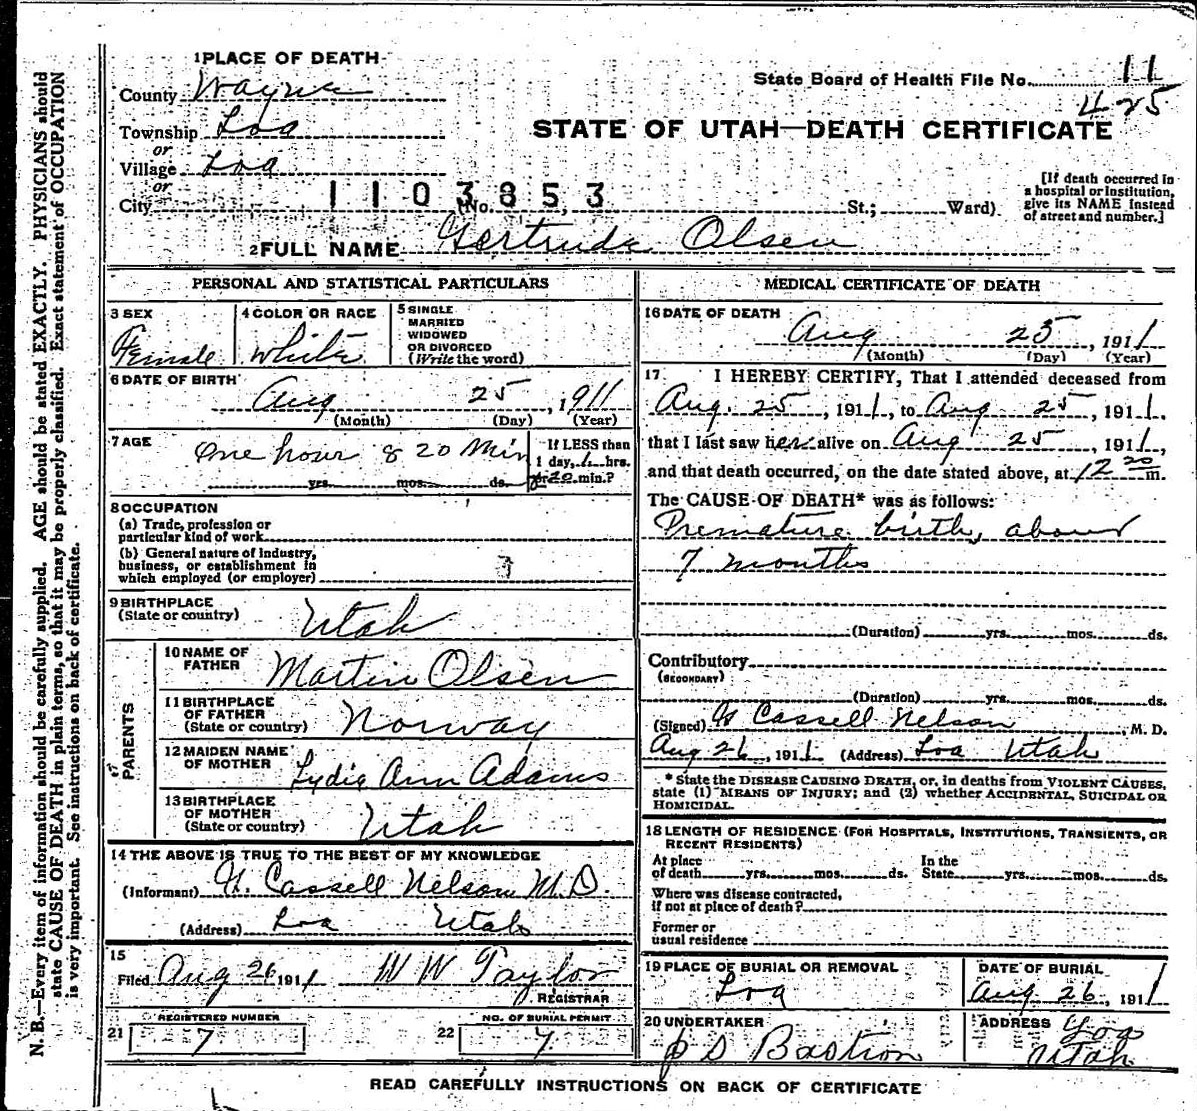 1 PLACE OF DEATH
County Wayne
Township Loa
or
Village Loa
or
City (No. St.; Ward)
1103853
State Board of Health File No. 11
425
STATE OF UTAH—DEATH CERTIFICATE
[If death occurred in
a hospital or institution,
give its NAME instead
of street and number.]
2 FULL NAME Gertrude Olsen
PERSONAL AND STATISTICAL PARTICULARS
3 SEX
Female
4 COLOR OR RACE
White
5 SINGLE
MARRIED
WIDOWED
OR DIVORCED
(Write the word)
6 DATE OF BIRTH
Aug 25, 1911
(Month) (Day) (Year)
7 AGE
One hour & 20 Min
yrs. mos. ds.
If LESS than
1 day, 1 hrs.
or 20 min.?
8 OCCUPATION
(a) Trade, profession or
particular kind of work
(b) General nature of industry,
business, or establishment in
which employed (or employer)
9 BIRTHPLACE
(State or country)
Utah
PARENTS
10 NAME OF
FATHER
Martin Olsen
11 BIRTHPLACE
OF FATHER
(State or country)
Norway
12 MAIDEN NAME
OF MOTHER
Lydia Ann Adams
13 BIRTHPLACE
OF MOTHER
(State or country)
Utah
14 THE ABOVE IS TRUE TO THE BEST OF MY KNOWLEDGE
(Informant) Cassell Nelson M.D.
(Address) Loa Utah
15
Filed Aug 26 1911 W W Taylor
REGISTRAR
REGISTERED NUMBER
21 7
NO. OF BURIAL PERMIT
22 7
MEDICAL CERTIFICATE OF DEATH
16 DATE OF DEATH
Aug 25, 1911
(Month) (Day) (Year)
17 I HEREBY CERTIFY, That I attended deceased from
Aug. 25, 1911, to Aug 25, 1911,
that I last saw her alive on Aug 25, 1911,
and that death occurred, on the date stated above, at 12 20 m.
The CAUSE OF DEATH* was as follows:
Premature birth, about
7 months
(Duration) yrs. mos. ds.
Contributory
(SECONDARY)
(Duration) yrs. mos. ds.
(Signed) Cassell Nelson, M. D.
Aug 26, 1911 (Address) Loa Utah
* State the DISEASE CAUSING DEATH, or, in deaths from VIOLENT CAUSES,
state (1) MEANS OF INJURY; and (2) whether ACCIDENTAL, SUICIDAL OR
HOMICIDAL.
18 LENGTH OF RESIDENCE (FOR HOSPITALS, INSTITUTIONS, TRANSIENTS, OR
RECENT RESIDENTS)
At place
of death yrs. mos. ds.
In the
State yrs. mos. ds.
Where was disease contracted,
if not at place of death?
Former or
usual residence
19 PLACE OF BURIAL OR REMOVAL
Loa
DATE OF BURIAL
Aug 26, 1911
20 UNDERTAKER
Bastion
ADDRESS Loa
Utah
READ CAREFULLY INSTRUCTIONS ON BACK OF CERTIFICATE
N. B.—Every item of information should be carefully supplied. AGE should be stated EXACTLY. PHYSICIANS should
state CAUSE OF DEATH in plain terms, so that it may be properly classified. Exact statement of OCCUPATION
is very important. See instructions on back of certificate.